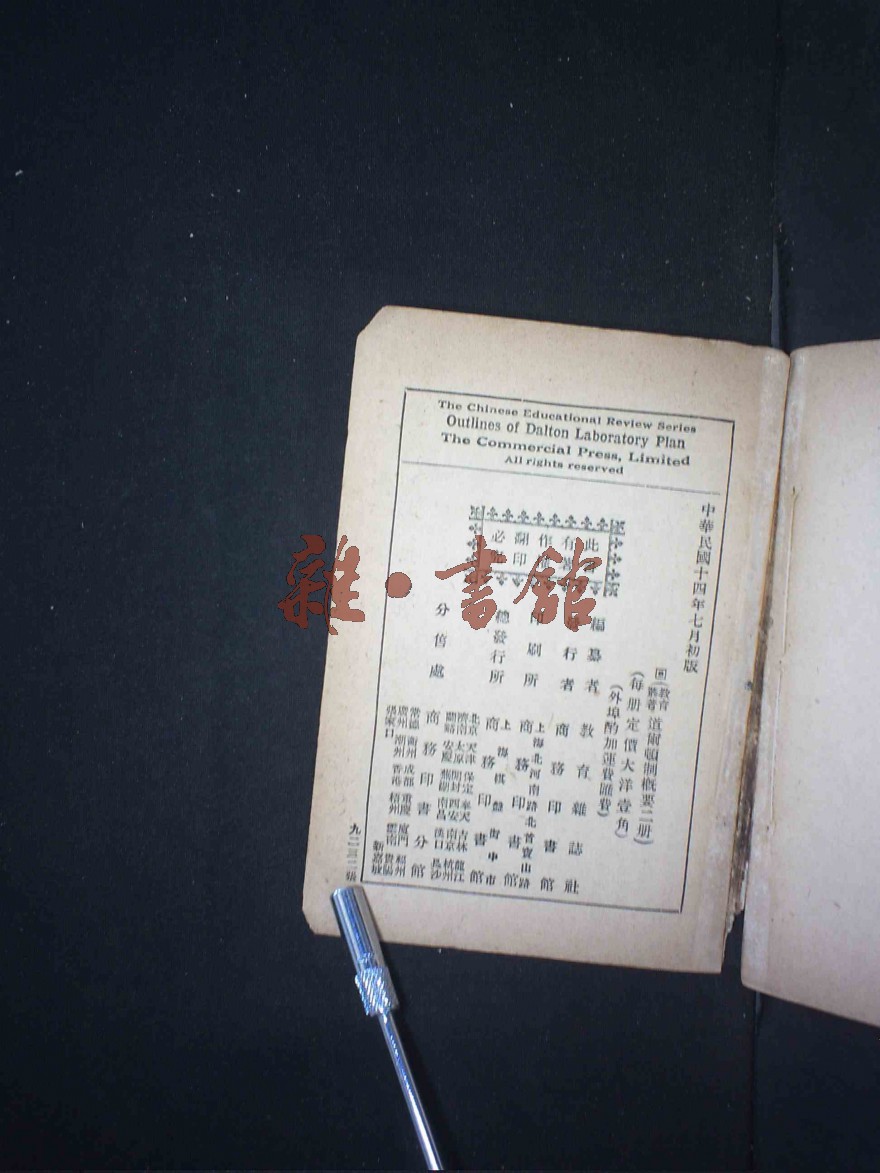 The Chinese Educational Review Series
Outlines of Dalton Laboratory Plan
The Commercial Press, Limited
All rights reserved
中華民國十四年七月初版
教育叢著 道爾頓制概要二册
(每册定價大洋壹角)
(外埠酌加運費匯費)
編纂者 教育雜誌社
行者 商務印書館
上海北河南路北首寶山路
印刷所 商務印書館
上海棋盤街中市
總發行所 商務印書館
分售處 商務印書分館
北京 天津 保定 奉天 吉林 龍江
濟南 太原 開封 西安 南京 杭州
安慶 蕪湖 南昌 漢口 長沙
常德 衡州 成都 重慶 廈門 福州
廣州 潮州 香港 梧州 貴陽
張家口 新嘉坡
此
有
作
翻印
必
雜·書館